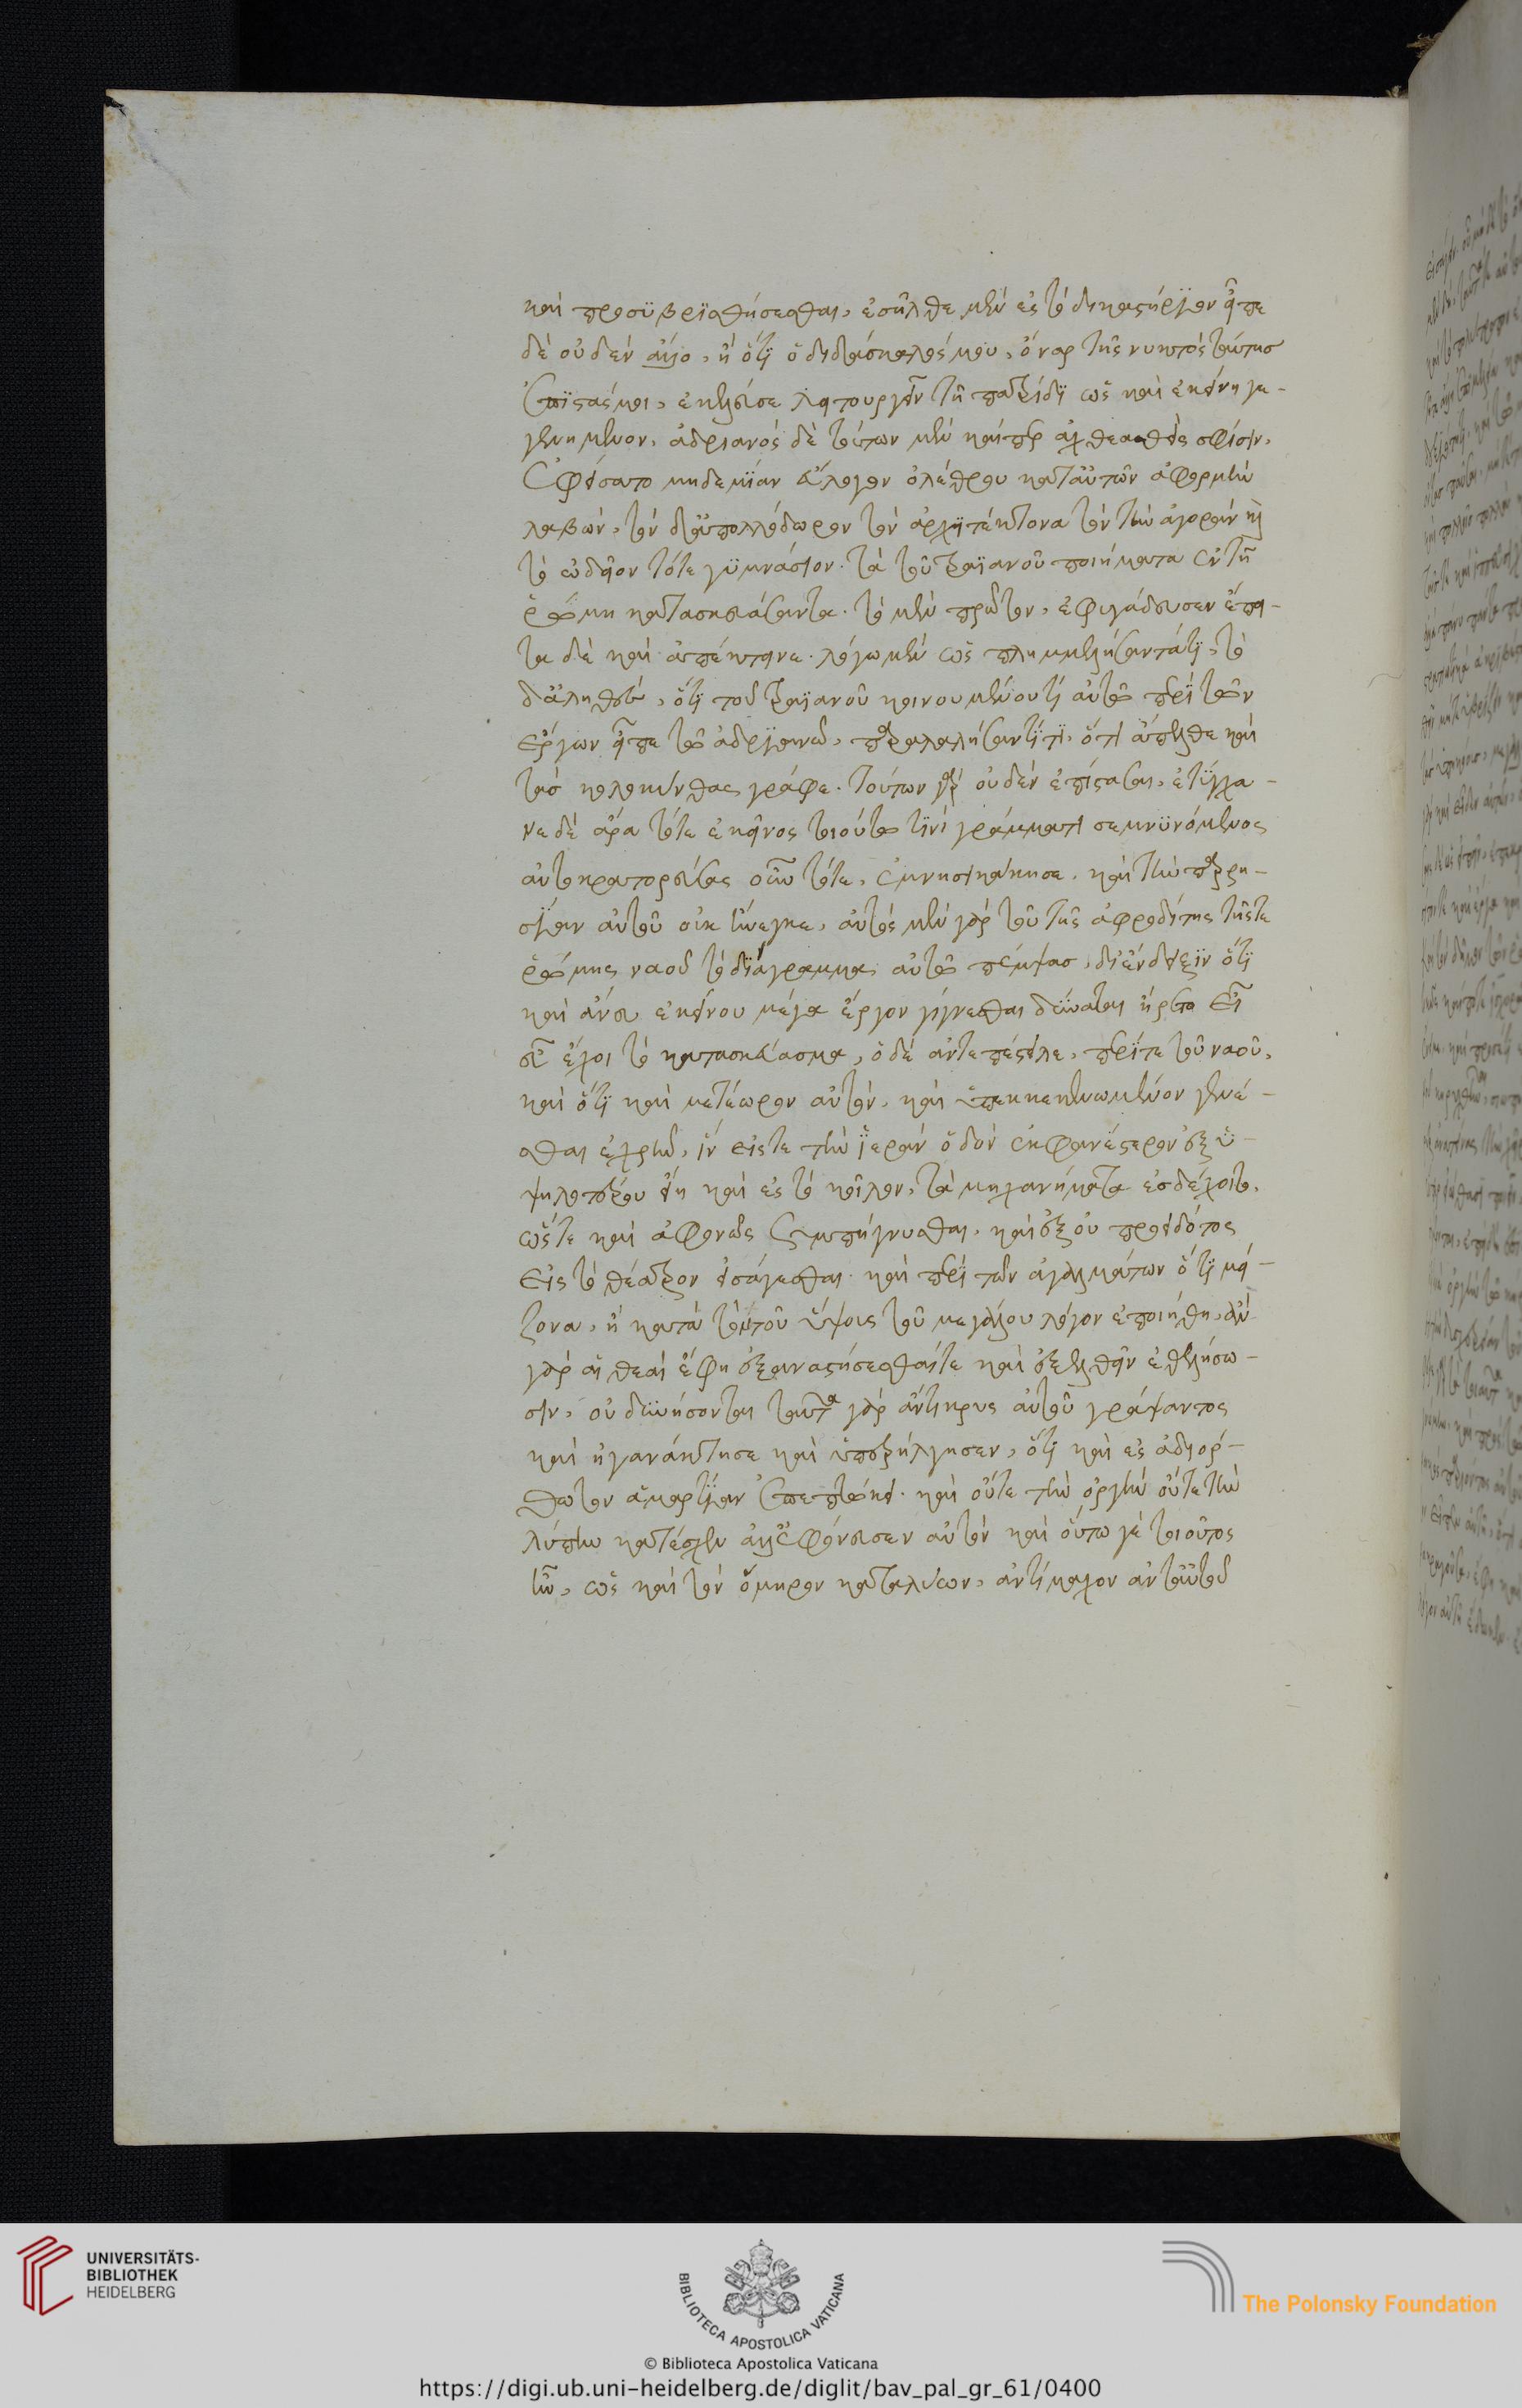 καὶ προσϋβρϊσθήσεσθαι, ἐσῆλθε μὲν ἐς τὸ δικαστήρϊον εἶπε
δὲ οὐδὲν ἄλλο, ἢ ὅτϊ ὁ διδάσκαλός μου, ὄναρ τῆς νυκτὸς ταύτησ
ἐπϊστάς μοι, ἐκέλευσε λειτουργεῖν τῆ πατρίδϊ ὡς καὶ ἐκείνη γε-
γενημένον. ἀδριανὸς δὲ τούτων μὲν καίπερ ἀχθεσθεὶς σφίσιν,
ἐφείσατο μηδεμϊαν εὔλογον ὀλέθρου κατ' αὐτῶν ἀφορμὴν
λαβών, τὸν δ' ἀπολλόδωρον τὸν ἀρχϊτέκτονα τὸν τὴν ἀγορὰν καὶ
τὸ ὠδεῖον τότε γϋμνάσιον. τὰ τοῦ τραϊανοῦ ποιήματα ἐν τῆ
ῥώμη κατασκευάσαντα. τὸ μὲν πρῶτον, ἐφυγάδευσεν ἔπει-
τα δὲ καὶ ἀπέκτεινε. λόγω μὲν ὡς πλημμελήσαντά τϊ, τὸ
δ' ἀληθὲς, ὅτϊ τοῦ τραϊανοῦ κοινουμένου τϊ αὐτῶ περὶ τῶν
ἔργων εἶπε τῶ ἀδρϊανῶ, παραλαλήσαντί τι, ὅτι ἄπελθε καὶ
τὰσ κολοκύνθας γράφε. τούτων γὰρ οὐδὲν ἐπίστασαι, ἐτύγχα-
νε δὲ ἄρα τότε ἐκεῖνος τοιούτω τϊνὶ γράμματι σεμνϋνόμενος
αὐτοκρατορεύσας οὖν τότε, ἐμνησικάκησε, καὶ τὴν παρρη-
σϊαν αὐτοῦ οὐκ ἤνεγκε, αὐτὸς μὲν γὰρ τοῦ τῆς ἀφροδίτης τῆς τε
ῥώμης ναοῦ τὸ δϊάγραμμα, αὐτῶ πέμψασ, δι' ἔνδειξϊν ὅτϊ
καὶ ἄνευ ἐκείνου μέγα ἔργον γίγνεσθαι δύναται ἤρετο εἰ
εὖ ἔχοι τὸ κατασκεύασμα, ὁ δὲ ἀντεπέστειλε, περί τε τοῦ ναοῦ,
καὶ ὅτϊ καὶ μετέωρον αὐτὸν, καὶ ὑπεκκεκενωμένον γενέ-
σθαι ἐχρῆν, ἵν' εἴς τε τὴν ἱερὰν ὁδὸν ἐκφανέστερον ἐξ ὑ-
ψηλοτέρου εἴη καὶ ἐς τὸ κοῖλον, τὰ μηχανήματα ἐσδέχοιτο,
ὥστε καὶ ἀφανῶς συμπήγνυσθαι, καὶ ἐξ οὐ προειδότος
εἰς τὸ θέατρον εἰσάγεσθαι. καὶ περὶ τῶν ἀγαλμάτων ὅτϊ μεί-
ζονα, ἢ κατὰ τὸν τοῦ ὕψους τοῦ μεγάλου λόγον ἐποιήθη, ἂν
γὰρ αἱ θεαὶ ἔφη ἐξαναστήσεσθαί τε καὶ ἐξελθεῖν ἐθελήσω-
σιν, οὐ δυνήσονται ταῦτα γὰρ ἄντικρυς αὐτοῦ γράψαντος
καὶ ἠγανάκτησε καὶ ὑπερήλγησεν, ὅτϊ καὶ ἐς ἀδιόρ-
θωτον ἁμαρτϊαν ἐπεπτώκει. καὶ οὔτε τὴν ὀργὴν οὔτε τὴν
λύπην κατέσχεν ἀλλ' ἐφόνευσεν αὐτὸν καὶ οὕτω γε τοιοῦτος
ἦν, ὡς καὶ τὸν ὅμηρον καταλύων, ἀντίμαχον ἀντ' αὐτοῦ
UNIVERSITÄTS-
BIBLIOTHEK
HEIDELBERG
BIBLIOTECA APOSTOLICA VATICANA
The Polonsky Foundation
© Biblioteca Apostolica Vaticana
https://digi.ub.uni-heidelberg.de/diglit/bav_pal_gr_61/0400